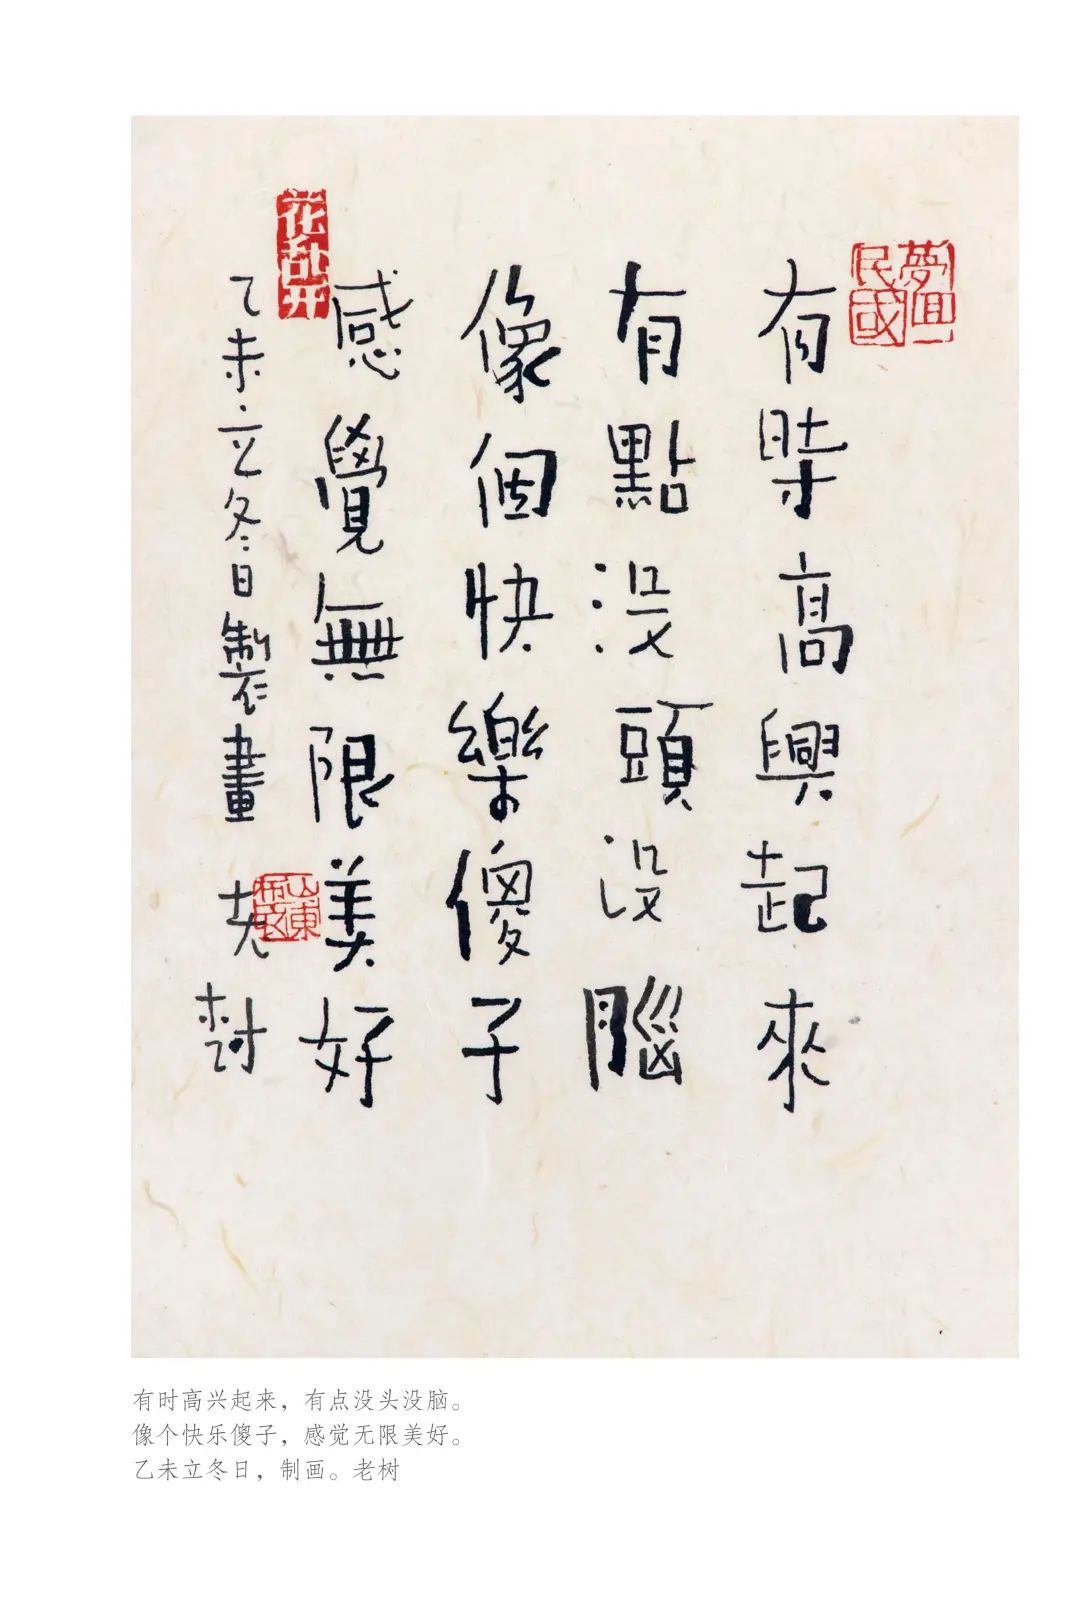 夢迴
民國
有時高興起來
有點没頭没腦
像個快樂傻子
感覺無限美好
花乱开
乙未立冬日製畫 老樹
山東
有时高兴起来，有点没头没脑。
像个快乐傻子，感觉无限美好。
乙未立冬日，制画。老树